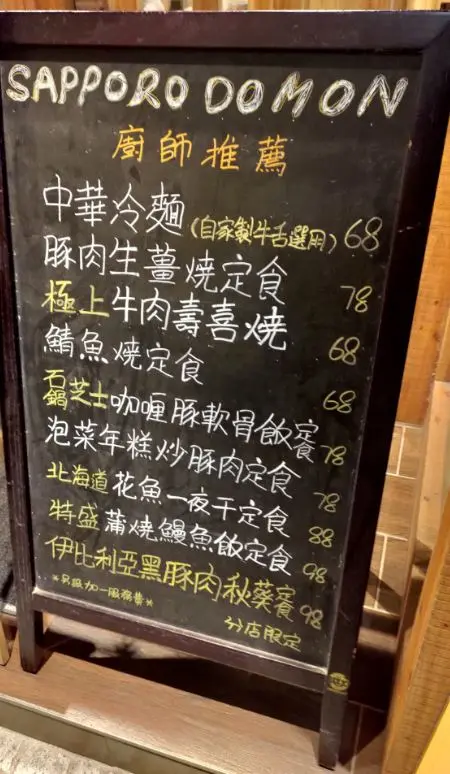 SAPPORO DOMON
廚師推薦
中華冷麵(自家製牛舌選用) 68
豚肉生薑燒定食 78
極上牛肉壽喜燒 68
鯖魚燒定食 68
石鍋芝士咖喱豚軟骨飯定食 78
泡菜年糕炒豚肉定食 78
北海道花魚一夜干定食 88
特盛蒲燒鰻魚飯定食 98
伊比利亞黑豚肉秋葵定食 98
*另設加一服務費*
分店限定